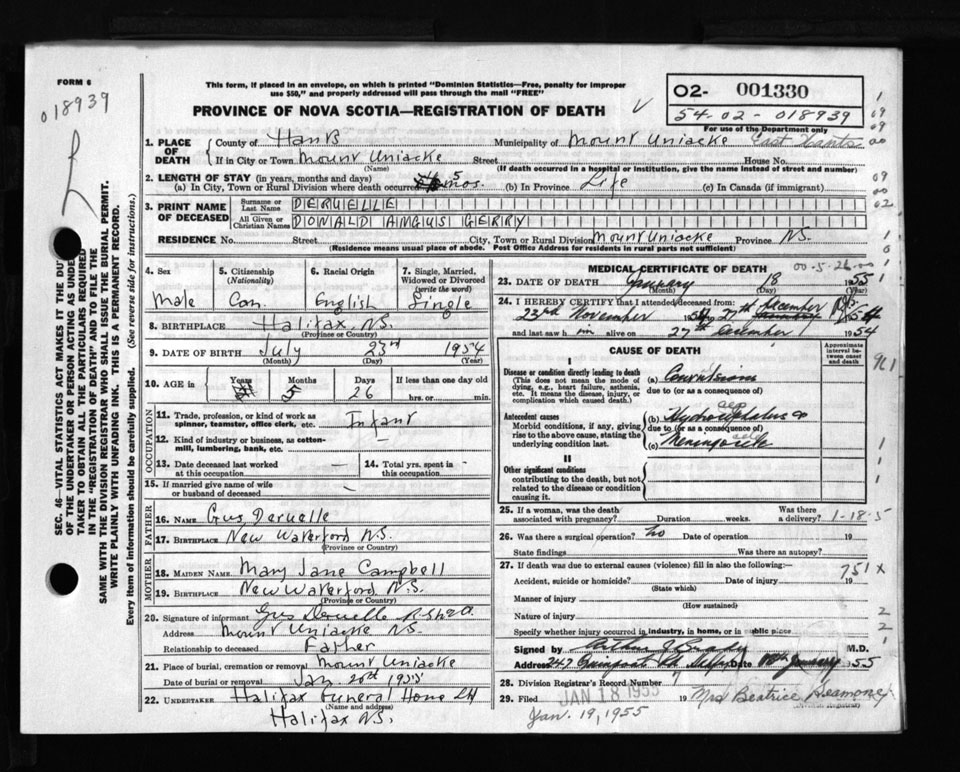 FORM 6
018939
This form, if placed in an envelope, on which is printed "Dominion Statistics—Free, penalty for improper
use $50," and properly addressed will pass through the mail "FREE"
PROVINCE OF NOVA SCOTIA—REGISTRATION OF DEATH
02- 001330
54-02-018939
For use of the Department only
1. PLACE OF DEATH
County of Hants Municipality of Mount Uniacke East Hants
If in City or Town Mount Uniacke Street House No.
(Name) (If death occurred in a hospital or institution, give the name instead of street and number)
2. LENGTH OF STAY (in years, months and days)
(a) In City, Town or Rural Division where death occurred 5 mos. (b) In Province Life (c) In Canada (if immigrant)
3. PRINT NAME OF DECEASED
Surname or Last Name DERUELLE
All Given or Christian Names DONALD ANGUS GERRY
RESIDENCE No. Street City, Town or Rural Division Mount Uniacke Province N.S.
(Residence means usual place of abode. Post Office Address for residents in rural parts not sufficient)
4. Sex Male
5. Citizenship (Nationality) Can.
6. Racial Origin English
7. Single, Married, Widowed or Divorced (write the word) Single
8. BIRTHPLACE Halifax, N.S.
(Province or Country)
9. DATE OF BIRTH July 23rd 1954
(Month) (Day) (Year)
10. AGE in Years Months 5 Days 26 If less than one day old hrs. or min.
OCCUPATION
11. Trade, profession, or kind of work as spinner, teamster, office clerk, etc. Infant
12. Kind of industry or business, as cotton-mill, lumbering, bank, etc. —
13. Date deceased last worked at this occupation —
14. Total yrs. spent in this occupation -
15. If married give name of wife or husband of deceased
FATHER
16. NAME Gus Deruelle
17. BIRTHPLACE New Waterford N.S.
(Province or Country)
MOTHER
18. MAIDEN NAME Mary Jane Campbell
19. BIRTHPLACE New Waterford, N.S.
(Province or Country)
20. Signature of informant Gus Deruelle
Address Mount Uniacke N.S.
Relationship to deceased Father
21. Place of burial, cremation or removal Mount Uniacke
Date of burial or removal Jan. 20th 1955
22. UNDERTAKER Halifax Funeral Home Ltd
(Name and address)
Halifax N.S.
MEDICAL CERTIFICATE OF DEATH
00-5-26
23. DATE OF DEATH January 18 1955
(Month) (Day) (Year)
24. I HEREBY CERTIFY that I attended deceased from:
23rd November 1954 27th December 54
and last saw h im alive on 27th December 1954
CAUSE OF DEATH
Approximate interval between onset and death
I
Disease or condition directly leading to death
(This does not mean the mode of dying, e.g., heart failure, asthenia, etc. It means the disease, injury, or complication which caused death.)
(a) Convulsions
due to (or as a consequence of)
Antecedent causes
Morbid conditions, if any, giving rise to the above cause, stating the underlying condition last.
(b) Hydrocephalus
due to (or as a consequence of)
(c) Meningocele
II
Other significant conditions
contributing to the death, but not related to the disease or condition causing it.
25. If a woman, was the death associated with pregnancy? Duration weeks. Was there a delivery? 1-18-5
26. Was there a surgical operation? no Date of operation 19
State findings Was there an autopsy?
27. If death was due to external causes (violence) fill in also the following:— 751 x
Accident, suicide or homicide? Date of injury 19
(State which)
Manner of injury
(How sustained)
Nature of injury
Specify whether injury occurred in industry, in home, or in public place
Signed by M.D.
Address 247 Date 18th January 1955
28. Division Registrar's Record Number 7
29. Filed JAN 18 1955 19 Mrs Beatrice Seamone
Jan. 19, 1955 (Division Registrar)
SEC. 46—VITAL STATISTICS ACT MAKES IT THE DUTY
OF THE UNDERTAKER OR PERSON ACTING AS UNDERTAKER
TO OBTAIN ALL THE PARTICULARS REQUIRED
IN THE "REGISTRATION OF DEATH" AND TO FILE THE
SAME WITH THE DIVISION REGISTRAR WHO SHALL ISSUE THE BURIAL PERMIT.
WRITE PLAINLY WITH UNFADING INK. THIS IS A PERMANENT RECORD.
Every item of information should be carefully supplied. (See reverse side for instructions.)